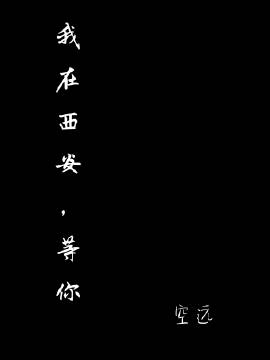 我在西安，等你
空远